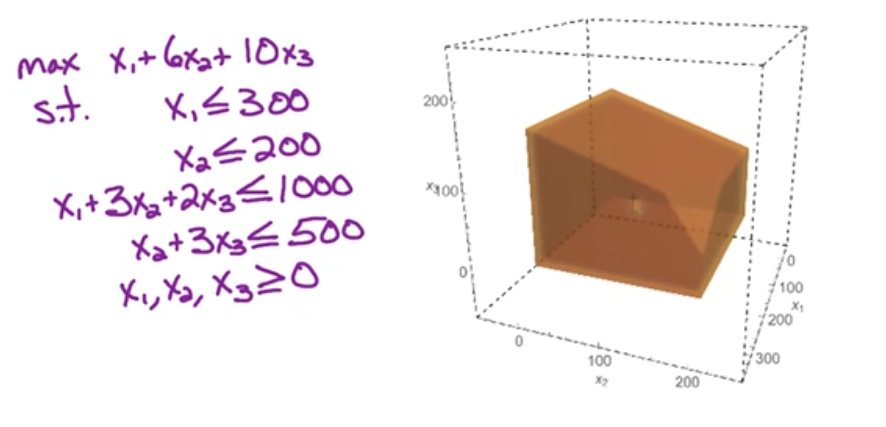 max x₁+6x₂+10x₃
s.t. x₁≤300
x₂≤200
x₁+3x₂+2x₃≤1000
x₂+3x₃≤500
x₁,x₂,x₃≥0
200
x₃
100
0
0
100
200
x₂
0
100
x₁
200
300